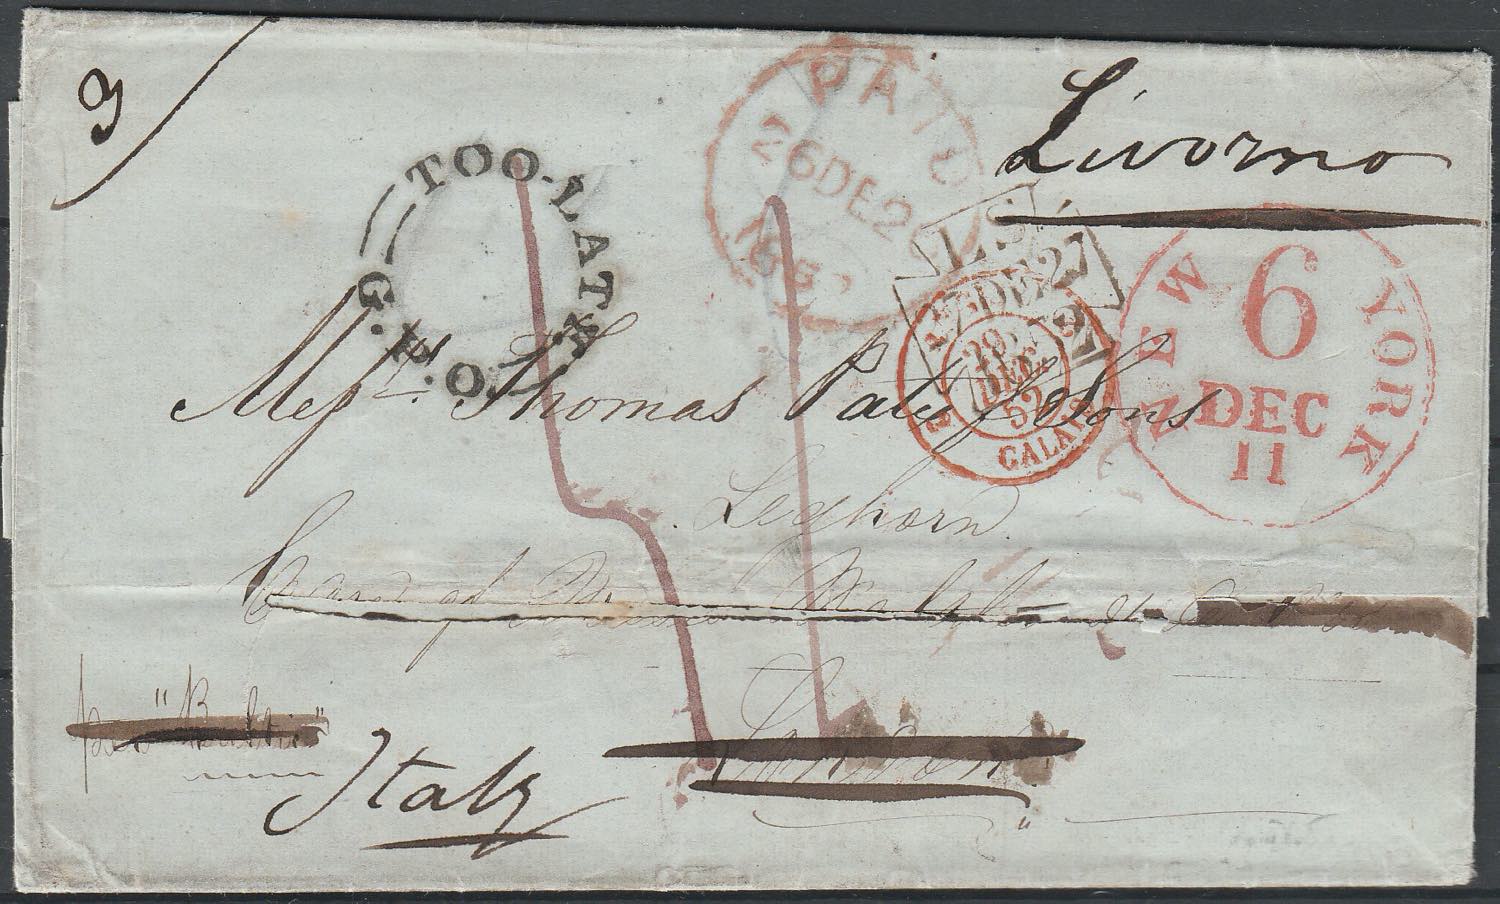 3/
TOO-LATE
G.P.O.
PAID
26 DE 26
1852
Livorno
L.S.
DE 27
29
DEC.
52
CALAIS
NEW YORK
6
DEC
11
Messrs. Thomas Paty & Sons
Leghorn.
Care of
per "Baltic"
London
Italy